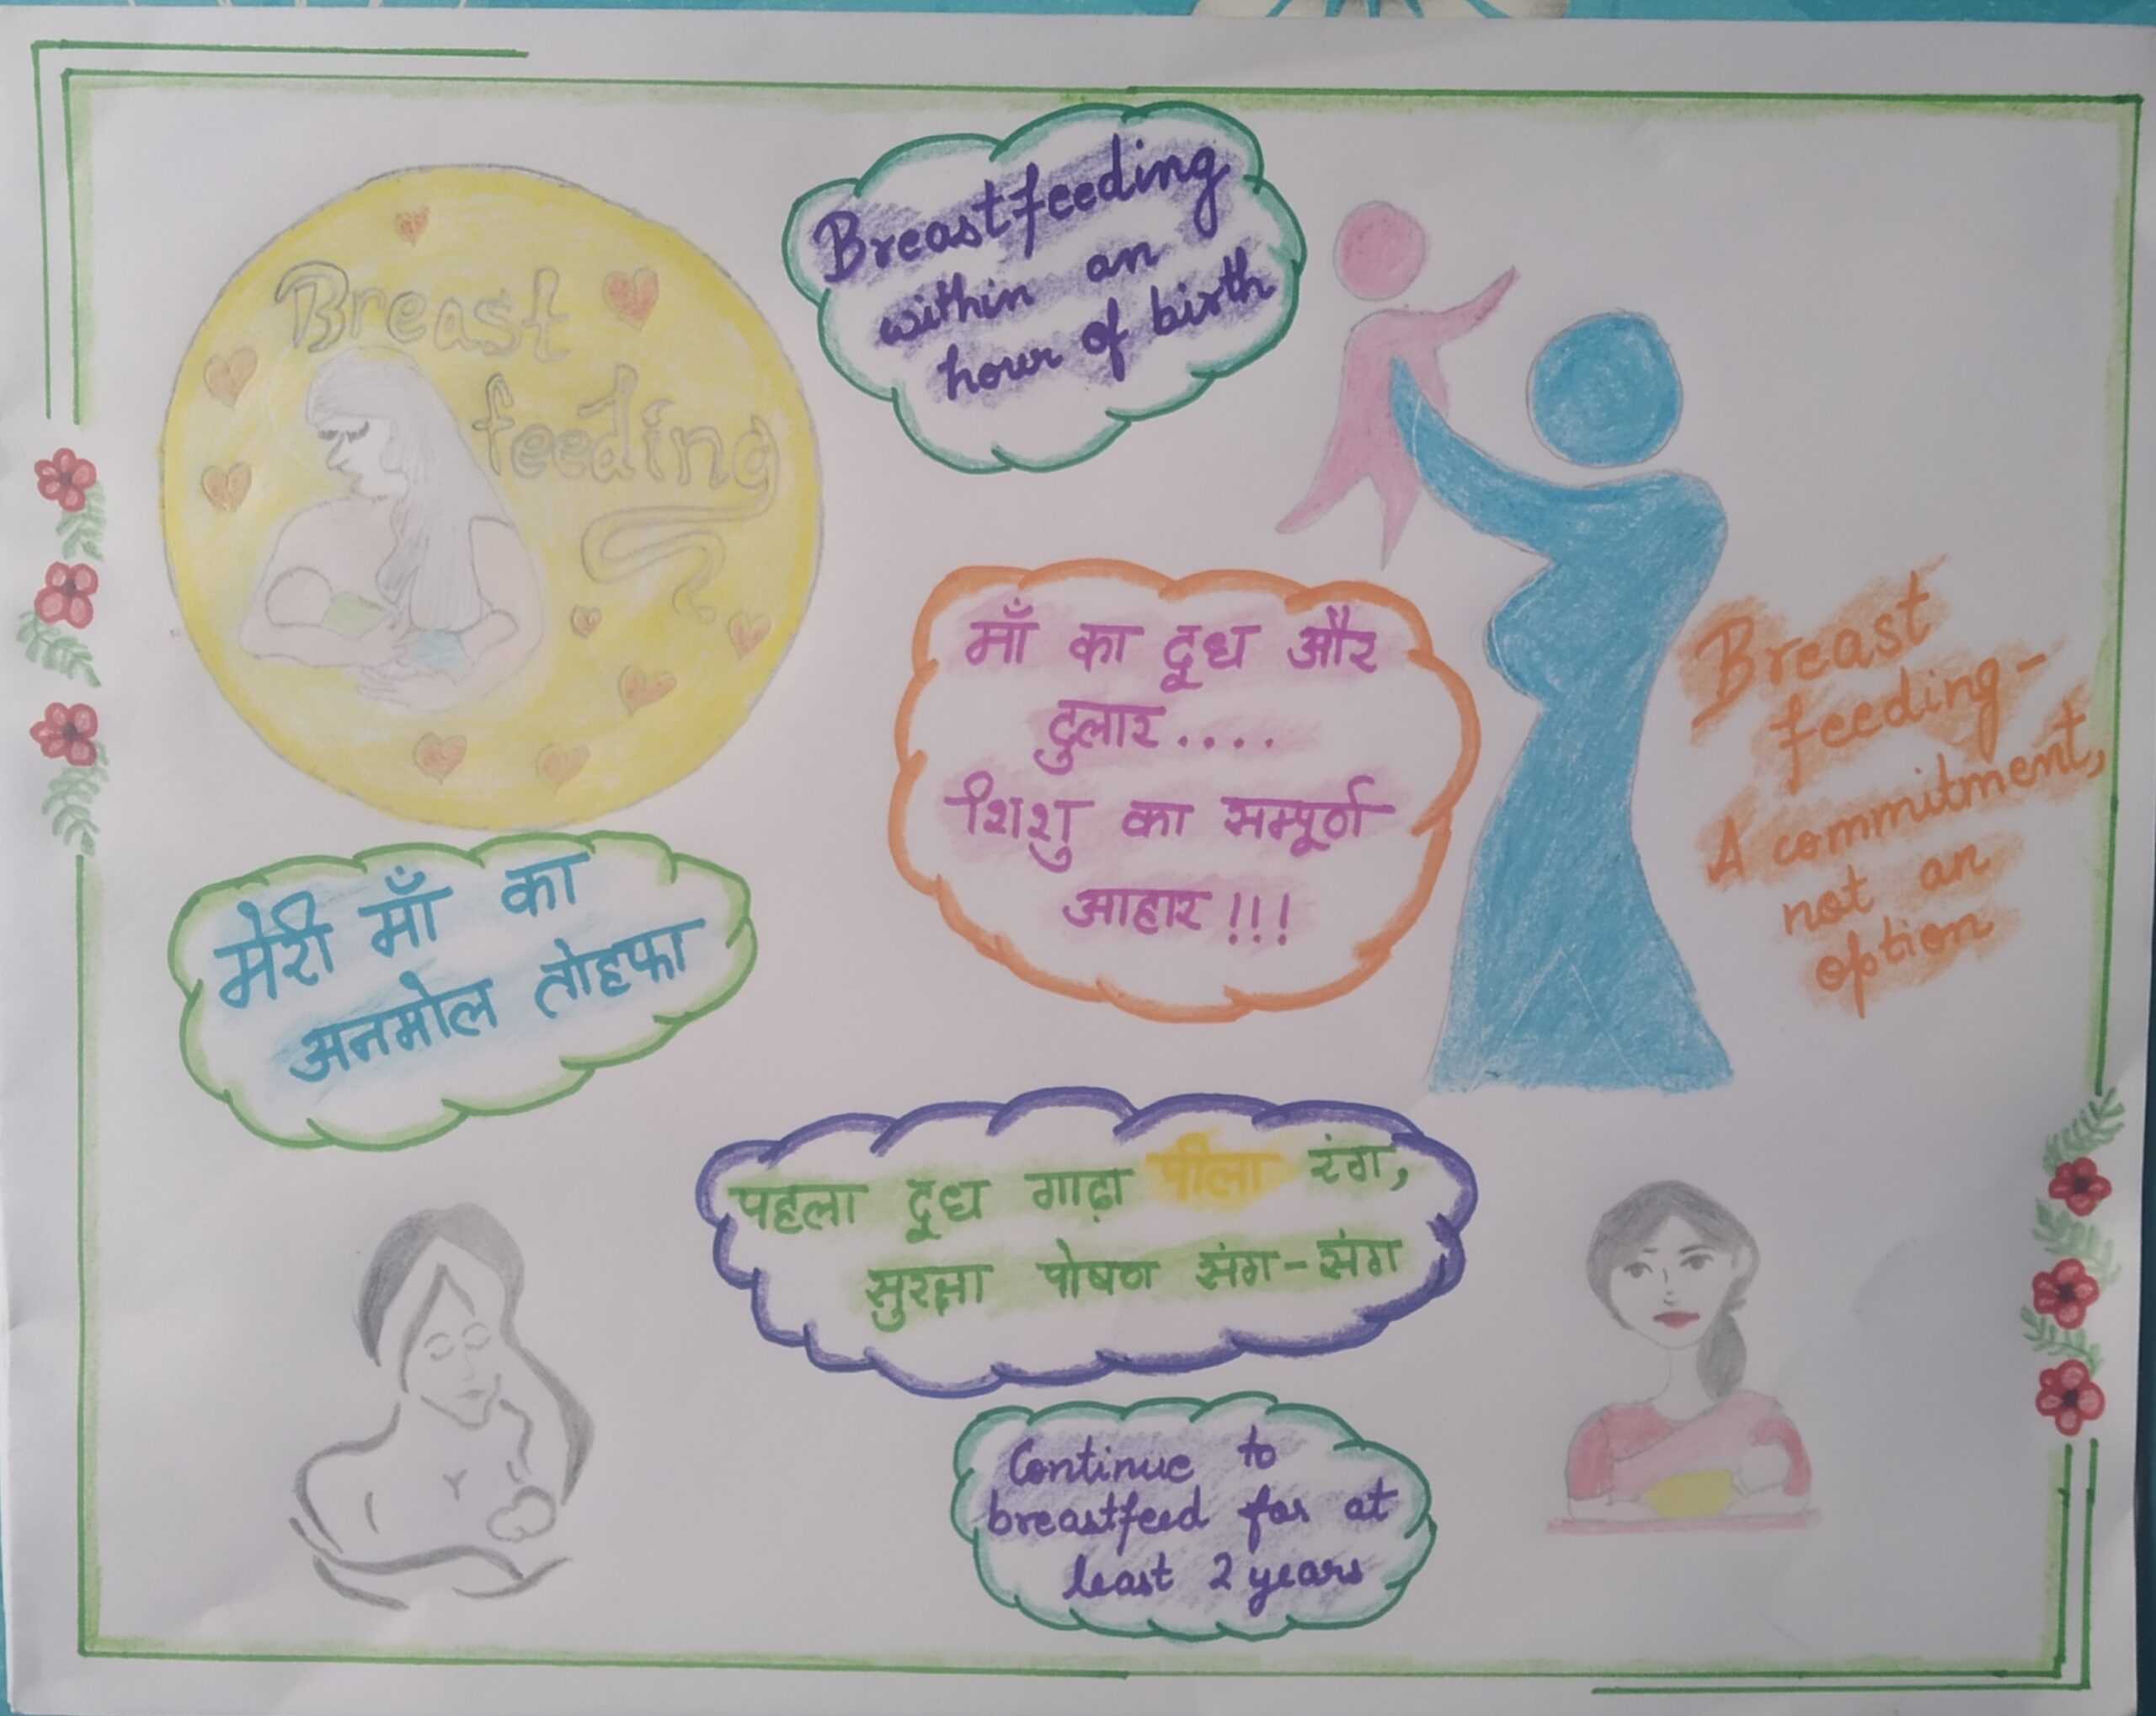 Breast
feeding
Breastfeeding
within an
hour of birth
माँ का दूध और
दुलार....
शिशु का सम्पूर्ण
आहार!!!
Breast
feeding-
A commitment,
not an
option
मेरी माँ का
अनमोल तोहफा
पहला दूध गाढ़ा पीला रंग,
सुरक्षा पोषण संग-संग
Continue to
breastfeed for at
least 2 years